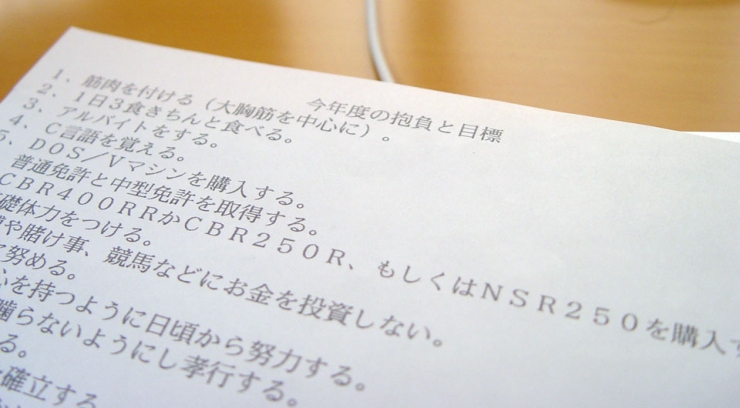 今年度の抱負と目標
1、筋肉を付ける(大胸筋を中心に)。
2、1日3食きちんと食べる。
3、アルバイトをする。
4、C言語を覚える。
5、DOS/Vマシンを購入する。
普通免許と中型免許を取得する。
CBR400RRかCBR250R、もしくはNSR250を購入す
礎体力をつける。
や賭け事、競馬などにお金を投資しない。
努める。
を持つように日頃から努力する。
らないようにし孝行する。
る。
確立する